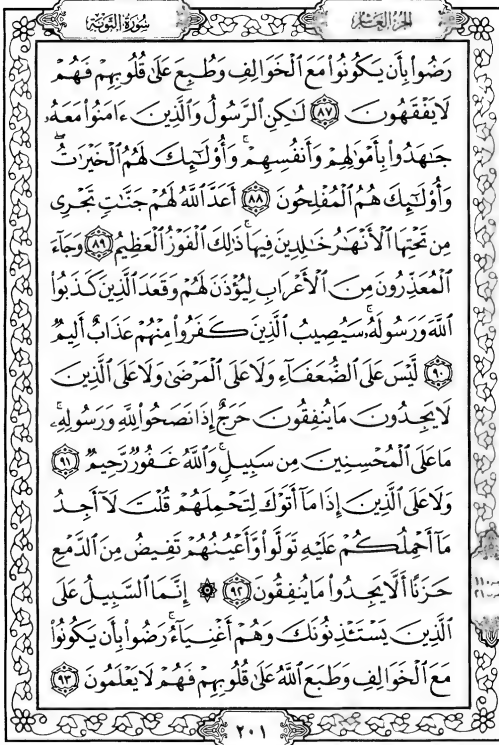 سُورَةُ التَّوْبَةِ
الجُزْءُ العَاشِر
رَضُوا۟ بِأَن يَكُونُوا۟ مَعَ ٱلْخَوَالِفِ وَطُبِعَ عَلَىٰ قُلُوبِهِمْ فَهُمْ
لَا يَفْقَهُونَ ٨٧ لَـٰكِنِ ٱلرَّسُولُ وَٱلَّذِينَ ءَامَنُوا۟ مَعَهُۥ
جَـٰهَدُوا۟ بِأَمْوَٰلِهِمْ وَأَنفُسِهِمْ ۚ وَأُو۟لَـٰٓئِكَ لَهُمُ ٱلْخَيْرَٰتُ ۖ
وَأُو۟لَـٰٓئِكَ هُمُ ٱلْمُفْلِحُونَ ٨٨ أَعَدَّ ٱللَّهُ لَهُمْ جَنَّـٰتٍ تَجْرِى
مِن تَحْتِهَا ٱلْأَنْهَـٰرُ خَـٰلِدِينَ فِيهَا ۚ ذَٰلِكَ ٱلْفَوْزُ ٱلْعَظِيمُ ٨٩ وَجَآءَ
ٱلْمُعَذِّرُونَ مِنَ ٱلْأَعْرَابِ لِيُؤْذَنَ لَهُمْ وَقَعَدَ ٱلَّذِينَ كَذَبُوا۟
ٱللَّهَ وَرَسُولَهُۥ ۚ سَيُصِيبُ ٱلَّذِينَ كَفَرُوا۟ مِنْهُمْ عَذَابٌ أَلِيمٌ
٩٠ لَّيْسَ عَلَى ٱلضُّعَفَآءِ وَلَا عَلَى ٱلْمَرْضَىٰ وَلَا عَلَى ٱلَّذِينَ
لَا يَجِدُونَ مَا يُنفِقُونَ حَرَجٌ إِذَا نَصَحُوا۟ لِلَّهِ وَرَسُولِهِۦ ۚ
مَا عَلَى ٱلْمُحْسِنِينَ مِن سَبِيلٍ ۚ وَٱللَّهُ غَفُورٌ رَّحِيمٌ ٩١
وَلَا عَلَى ٱلَّذِينَ إِذَا مَآ أَتَوْكَ لِتَحْمِلَهُمْ قُلْتَ لَآ أَجِدُ
مَآ أَحْمِلُكُمْ عَلَيْهِ تَوَلَّوا۟ وَّأَعْيُنُهُمْ تَفِيضُ مِنَ ٱلدَّمْعِ
حَزَنًا أَلَّا يَجِدُوا۟ مَا يُنفِقُونَ ٩٢ ۞ إِنَّمَا ٱلسَّبِيلُ عَلَى
ٱلَّذِينَ يَسْتَـْٔذِنُونَكَ وَهُمْ أَغْنِيَآءُ ۚ رَضُوا۟ بِأَن يَكُونُوا۟
مَعَ ٱلْخَوَالِفِ وَطَبَعَ ٱللَّهُ عَلَىٰ قُلُوبِهِمْ فَهُمْ لَا يَعْلَمُونَ ٩٣
٢٠١